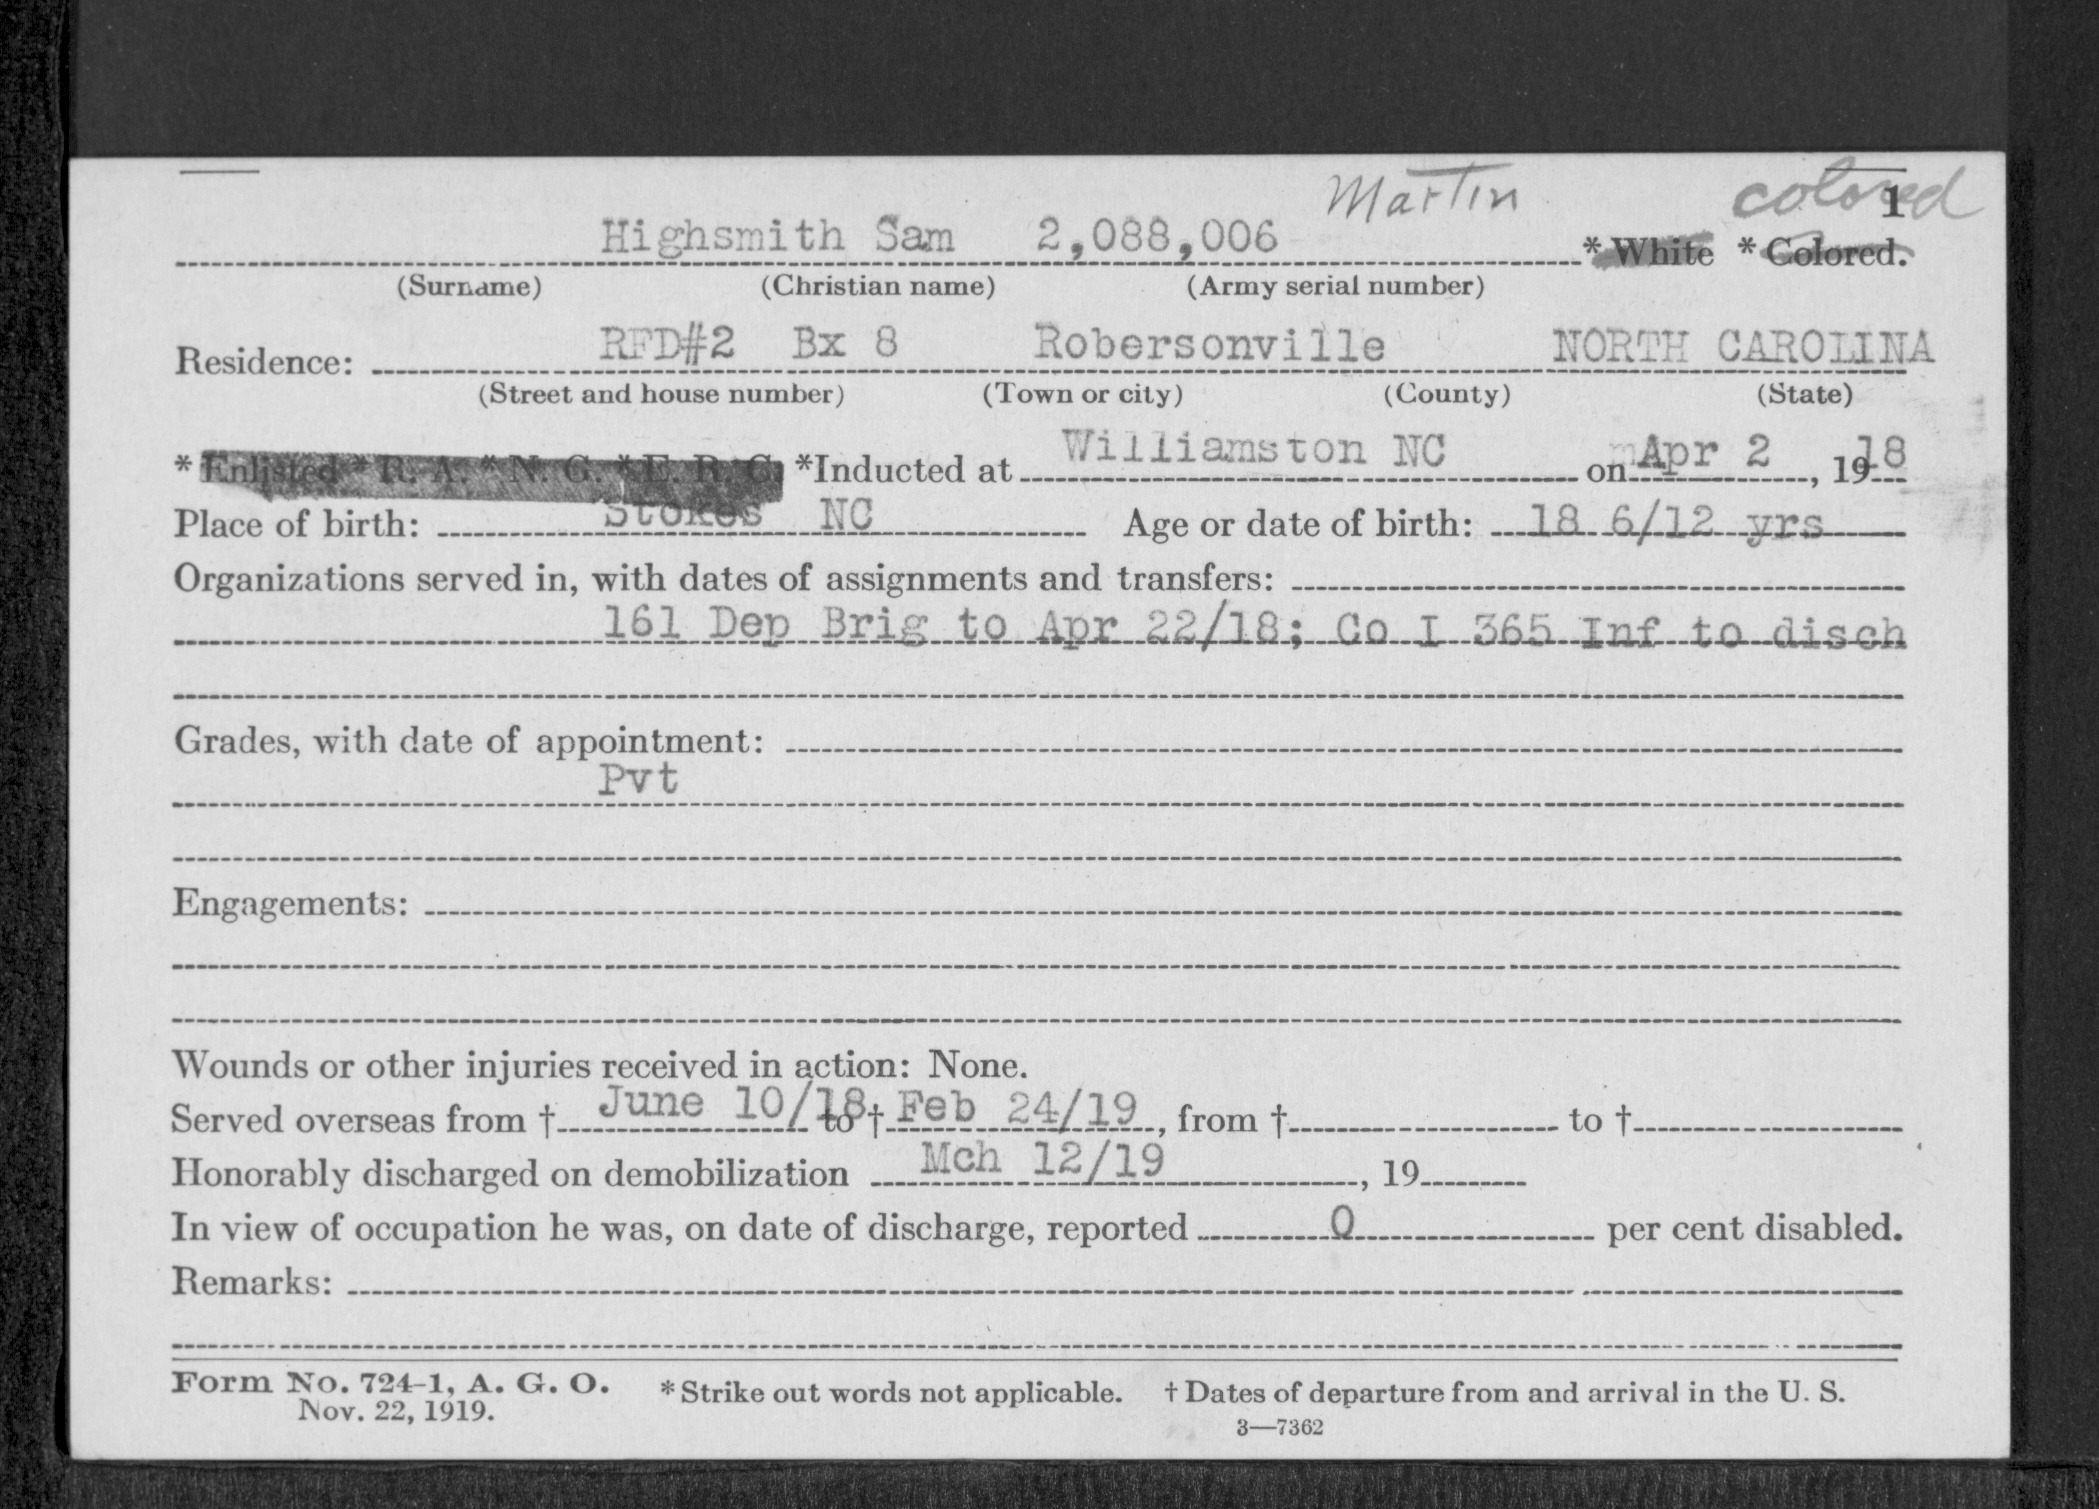 Martin colored 1
Highsmith Sam 2,088,006 * White * Colored.
(Surname) (Christian name) (Army serial number)
RFD#2 Bx 8 Robersonville NORTH CAROLINA
Residence:
(Street and house number) (Town or city) (County) (State)
* Enlisted * R. A. * N. G. * E. R. C. *Inducted at Williamston NC on Apr 2, 1918
Place of birth: Stokes NC Age or date of birth: 18 6/12 yrs
Organizations served in, with dates of assignments and transfers:
161 Dep Brig to Apr 22/18; Co I 365 Inf to disch
Grades, with date of appointment:
Pvt
Engagements:
Wounds or other injuries received in action: None.
Served overseas from † June 10/18 to † Feb 24/19, from † to †
Honorably discharged on demobilization Mch 12/19, 19
In view of occupation he was, on date of discharge, reported 0 per cent disabled.
Remarks:
Form No. 724-1, A. G. O. * Strike out words not applicable. † Dates of departure from and arrival in the U. S.
Nov. 22, 1919.
3—7362